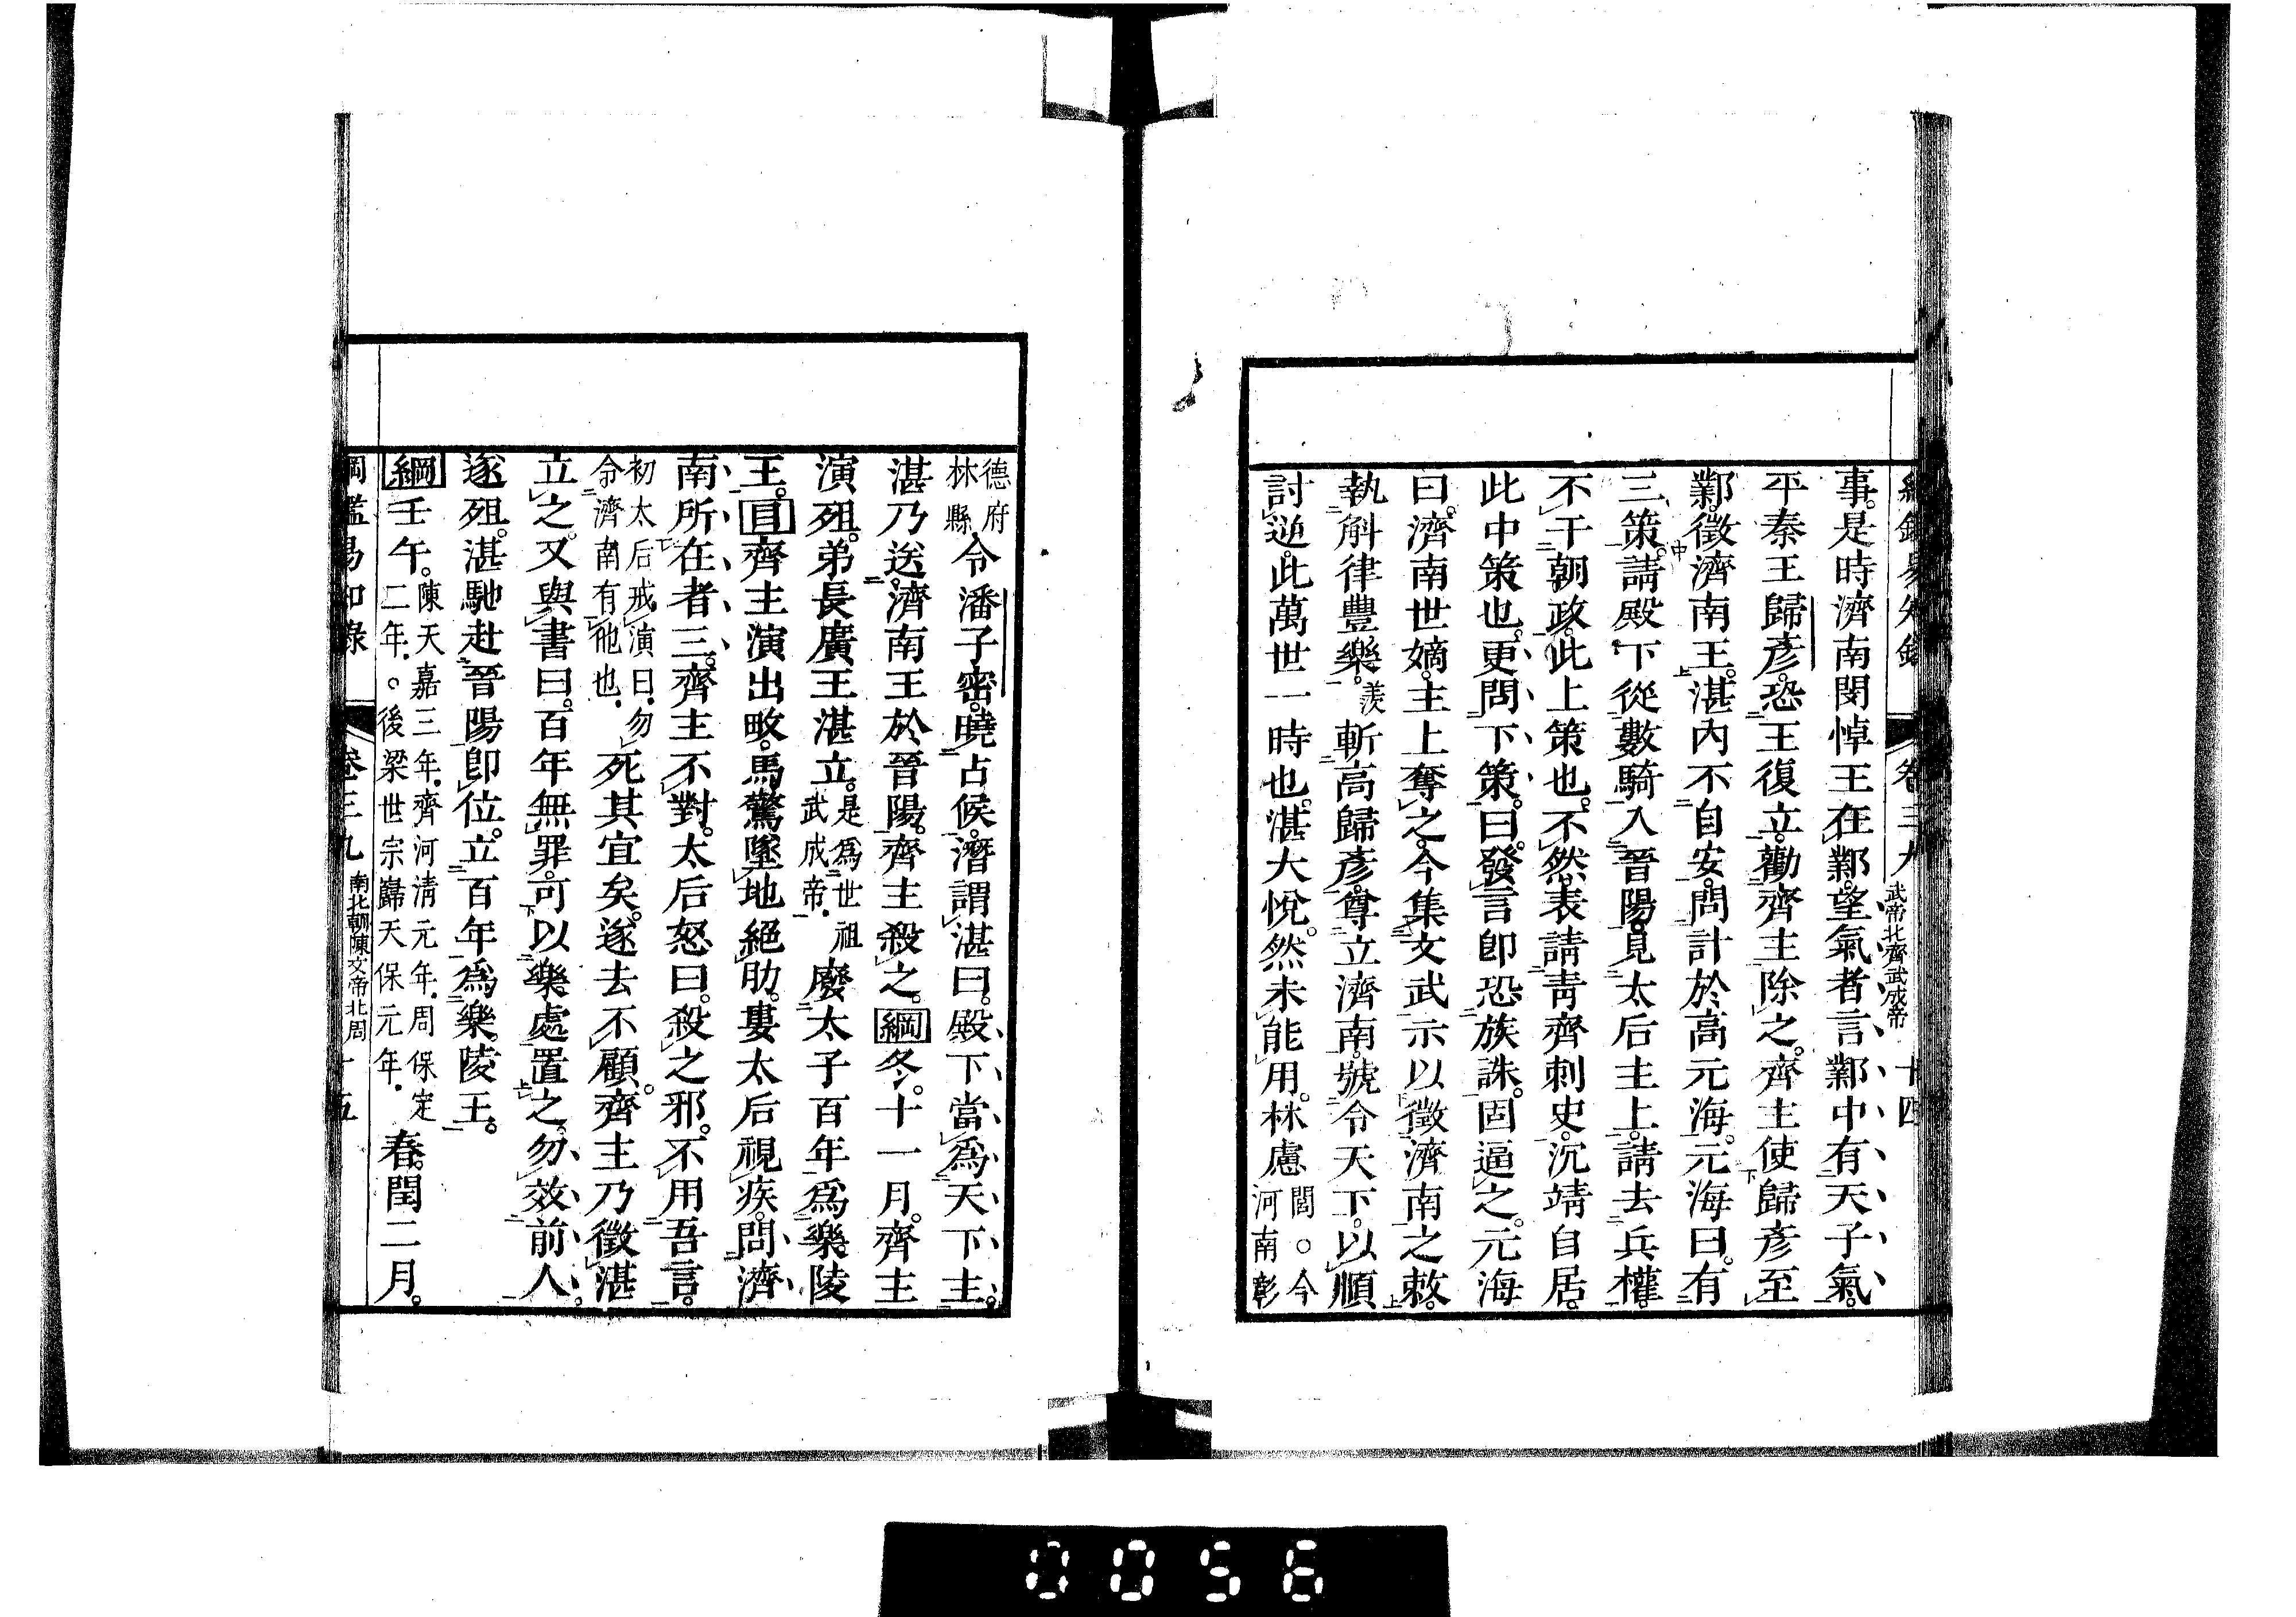 綱鑑易知錄 卷三九 武帝北齊武成帝 十四
事。是時濟南閔悼王在鄴。望氣者言鄴中有天子氣。
平秦王歸彥。恐王復立。勸齊主除之。齊主使歸彥至
鄴。徵濟南王。湛內不自安。問計於高元海。元海曰。有
三策。請殿下從數騎入晉陽。見太后主上。請去兵權。
不干朝政。此上策也。不然。表請青齊刺史。沉靖自居。
此中策也。更問下策。曰。發言卽恐族誅。固逼之。元海
曰。濟南世嫡。主上奪之。今集文武示以徵濟南之敕。
執斛律豐樂。羨 斬高歸彥。尊立濟南。號令天下。以順
討逆。此萬世一時也。湛大悅。然未能用。林慮 閭。○今河南彰
德府林縣 令潘子密。曉占候。潛謂湛曰。殿下當為天下主。
湛乃送濟南王於晉陽。齊主殺之。綱冬。十一月。齊主
演殂。弟長廣王湛立。是爲世祖武成帝。廢太子百年爲樂陵
王。目齊主演出畋。馬驚墜地絕肋。婁太后視疾。問濟
南所在者三。齊主不對。太后怒曰。殺之邪。不用吾言。
初太后戒演曰。勿令濟南有他也。死其宜矣。遂去不顧。齊主乃徵湛
立之。又與書曰。百年無罪。可以樂處置之。勿效前人。
遂殂。湛馳赴晉陽卽位。立百年爲樂陵王。
綱壬午。陳天嘉三年。齊河清元年。周保定二年。○後梁世宗巋天保元年。春。閏二月。
綱鑑易知錄 卷三九 南北朝陳文帝北周 十五
0056